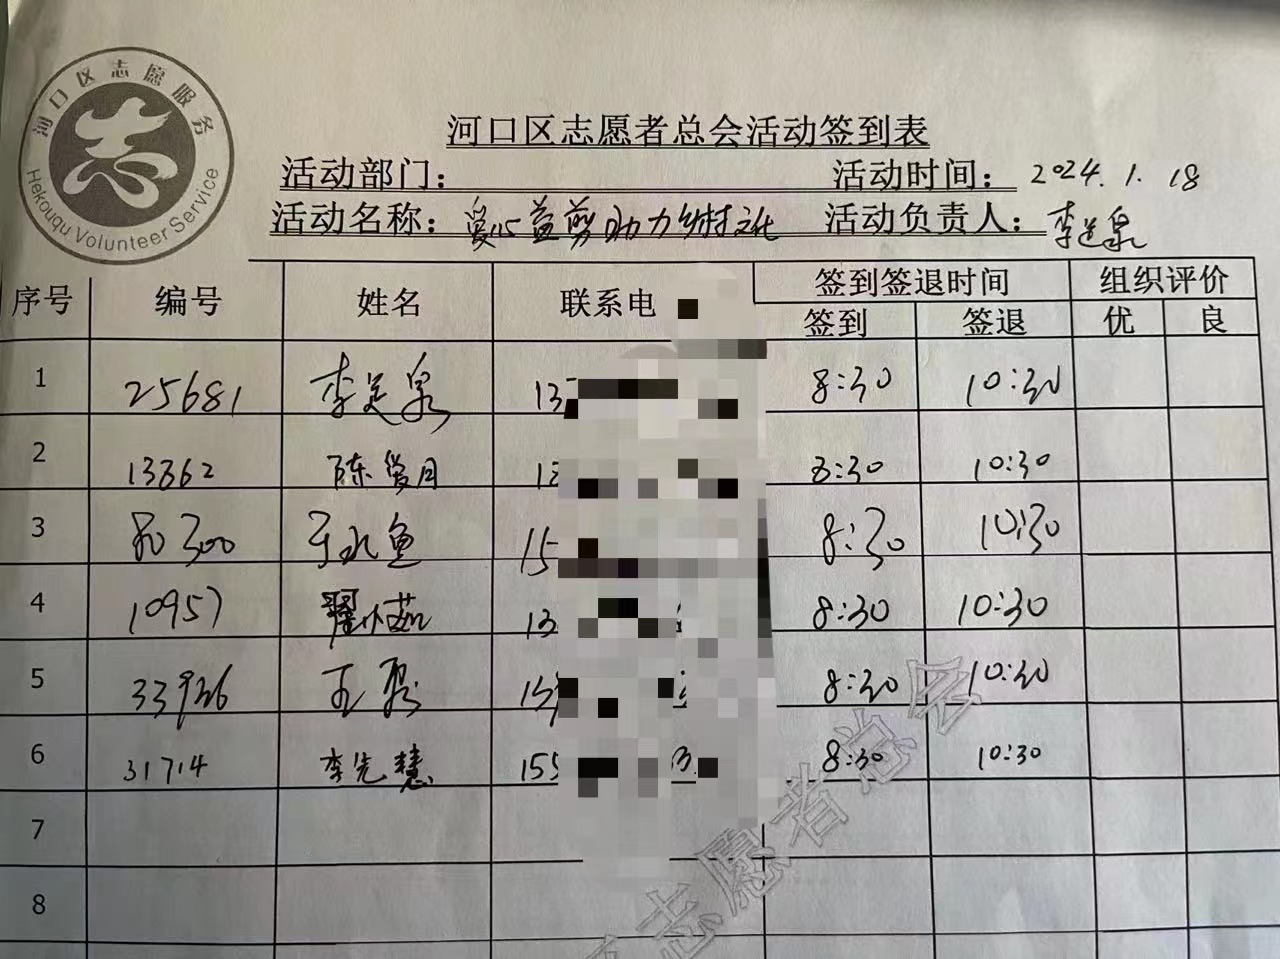 河口区志愿服务
志
Hekouqu Volunteer Service
河口区志愿者总会活动签到表
活动部门： 活动时间： 2024.1.18
活动名称：爱心益剪助力乡村文化 活动负责人：李延泉
序号 编号 姓名 联系电 签到签退时间 组织评价
签到 签退 优 良
1 25681 李延泉 13 8:30 10:30
2 13862 陈爱月 8:30 10:30
3 80300 15 8:30 10:30
4 10957 翟小茹 13 8:30 10:30
5 33926 王 8:30 10:30
6 31714 李先慧 155 8:30 10:30
7
8
区志愿者总会